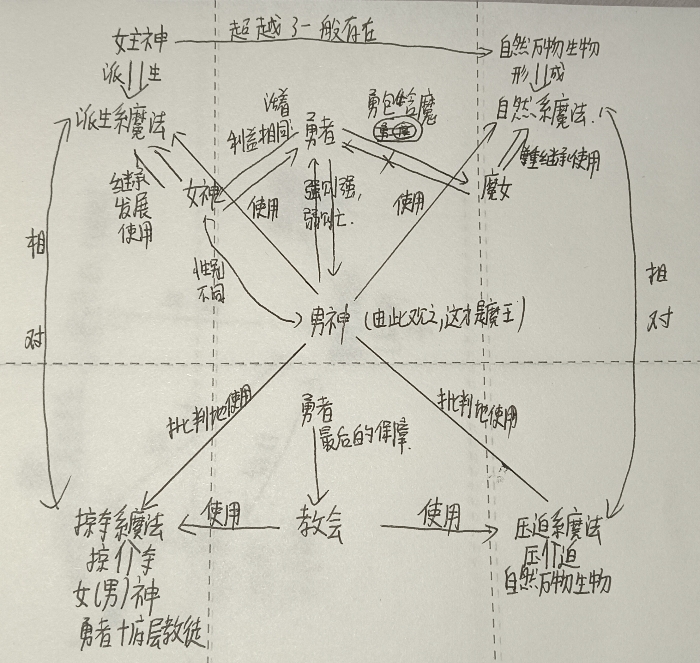 女主神
超越了一般存在
自然万物生物
派 生
形 成
派生系魔法
沿着
利益相同
勇者
勇包给魔
自然系魔法.
继承
发展
使用
女神
使用
强则强,
弱则亡.
使用
魔女
继承使用
相
对
性别
不同
男神
(由此观之,这才是魔王)
相
对
批判地使用
勇者
最后的保障.
批判地使用
掠夺系魔法
使用
教会
使用
压迫系魔法
掠 夺
压 迫
女(男)神
自然万物生物
勇者+底层教徒